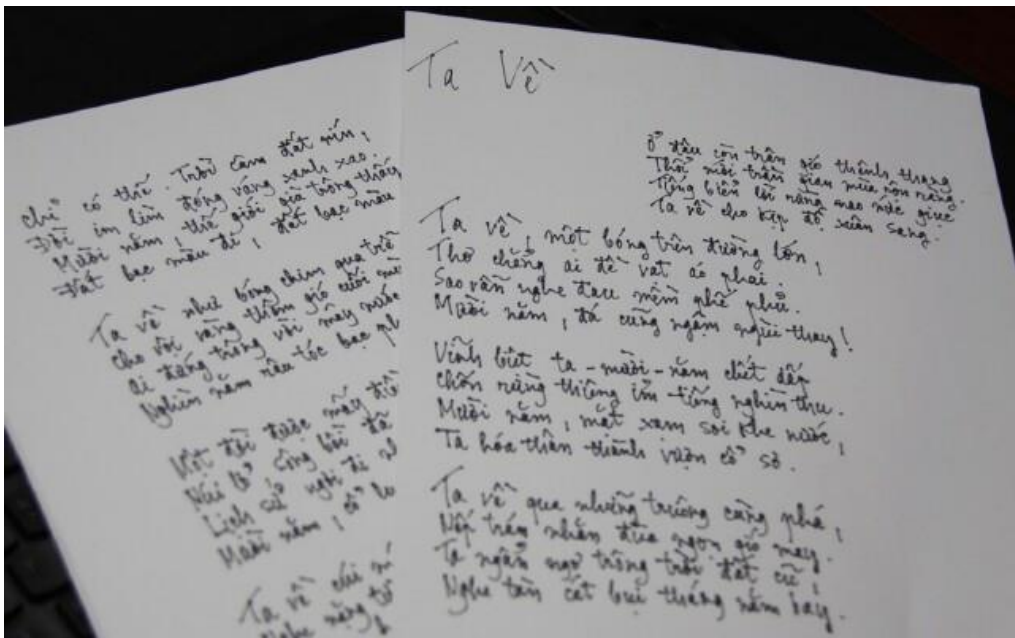 Chỉ có thế. Trời câm đất nín,
Đời im lìm đóng váng xanh xao.
Mười năm, thế giới già trông thấy
Đất bạc màu đi, đất bạc màu
Ta về như bóng chim qua trễ
Cho vội vàng thêm gió cuối
Ai đứng trông vời mây nước
Nghìn năm râu tóc bạc
Một đời được mấy
Núi lở sông bồi đã
Lịch sử ngơi đi
Mười năm, cổ
Ta về cúi
Nghe nặng
Ta Về
Ở đâu còn trận gió thênh thang
Thổi mới trần gian mùa rộn ràng.
Tiếng biển lời rừng nao nức giục
Ta về cho kịp độ xuân sang.
Ta về, một bóng trên đường lớn,
Thơ chẳng ai đề vạt áo phai.
Sao vẫn nghe đau mềm phế phủ.
Mười năm, đá cũng ngậm ngùi thay!
Vĩnh biệt ta-mười-năm chết dấp
Chốn rừng thiêng ỉm tiếng nghìn thu.
Mười năm, mặt xạm soi khe nước,
Ta hóa thân thành vượn cổ sơ.
Ta về qua những truông cùng phá,
Nếp trán nhăn đùa ngọn gió may.
Ta ngẩn ngơ trông trời đất cũ,
Nghe tàn cát bụi tháng năm bay.